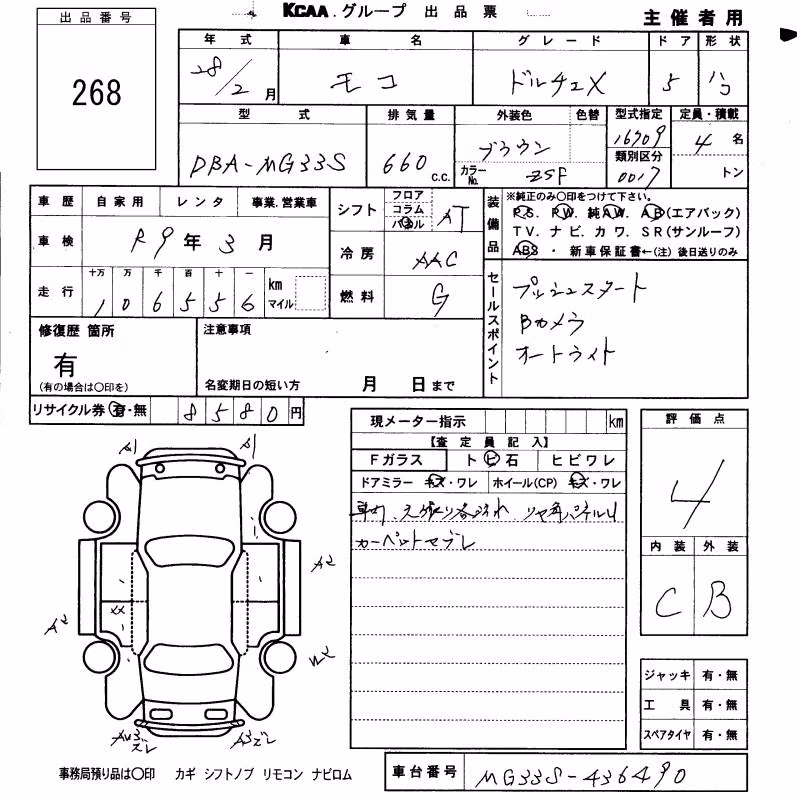 出品番号
268
KCAA.グループ 出品票
主催者用
年式 車名 グレード ドア 形状
28/2月 モコ ドルチェX 5 ハコ
型式 排気量 外装色 色替 型式指定 定員・積載
DBA-MG33S 660 c.c. ブラウン カラーNo. ZSF 16709 類別区分 0017 4名 トン
車歴 自家用 レンタ 事業.営業車
車検 R9年3月
走行 十万 万 千 百 十 一
1 0 6 5 5 6 km マイル
シフト フロア コラム パネル AT
冷房 AAC
燃料 G
装備品
※純正のみ〇印をつけて下さい。
P.S. P.W. 純A.W. A.B(エアバック)
T V. ナビ. カワ. S R(サンルーフ)
ABS ・ 新車保証書←(注) 後日送りのみ
セールスポイント
プッシュスタート
Bカメラ
オートライト
修復歴 箇所
有
(有の場合は〇印を)
注意事項
名変期日の短い方 月 日まで
リサイクル券 有・無 8580円
現メーター指示 km
【査定員記入】
Fガラス ト ビ 石 ヒビワレ
ドアミラー キズ・ワレ ホイール(CP) キズ・ワレ
カーペットヤブレ
評価点
4
内装 外装
C B
ジャッキ 有・無
工具 有・無
スペアタイヤ 有・無
A1 A1
A2
XX
A2
ズレ A3ズレ
事務局預り品は〇印 カギ シフトノブ リモコン ナビロム
車台番号 MG33S-436490